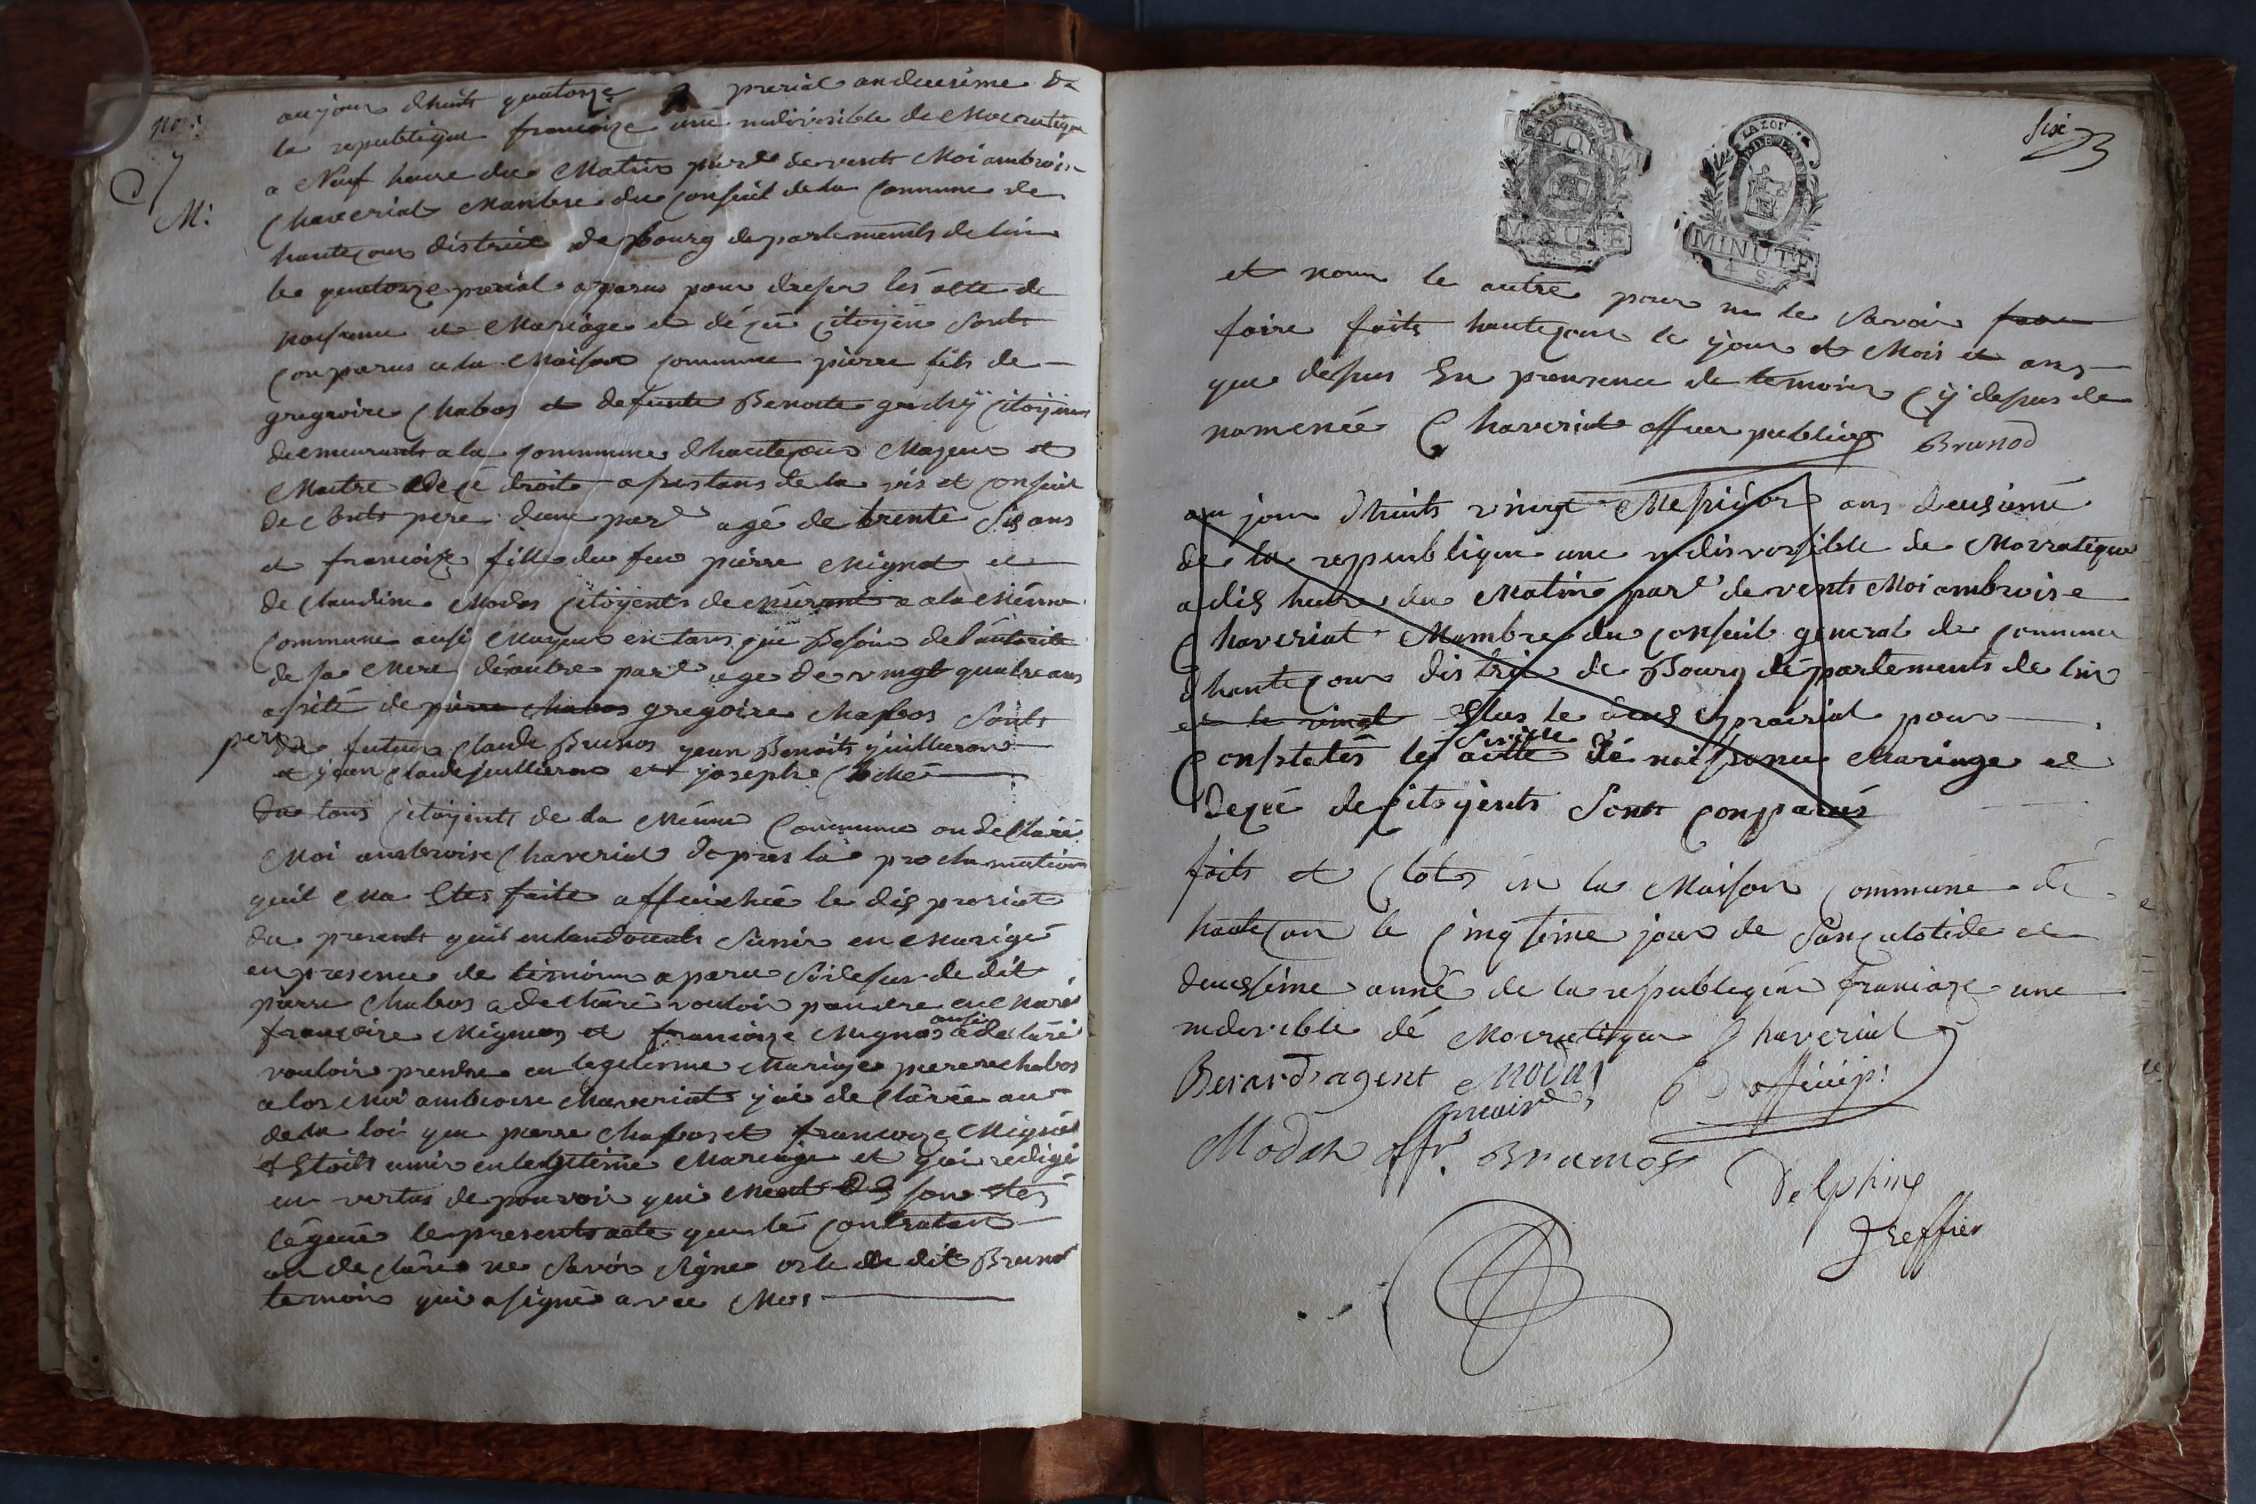 no :
7
M:
aujour dhuit quatorze prerial an deusième de
la republique francoize une indivisible de Mocratique
a Neuf heure du Matin par devents Moi ambrois
Chaveriat Manbre du Conseil de la Commune de
hautecour district de bourg departements de lin
le quatorze prerial aparus pour dreser les acte de
naisance et Mariage et décü Citoyen sonts
Conparus a la Maison Commune pierre fils de
gregoire Chabos et defunte Benoite Citoyens
demeurants a la Commune dhautecour Majeur et
Maitre de cé droite asistans de la vis et Conseil
de pere dune par agé de trente Sis ans
et francoize fille du feu pierre Mignot et
de Claudine Modas Citoyents de a ala Méme
Commune ausi Majeur en tans que Besoin de lautorite
de sa Mere déautre par age de vingt quatre ans
asisté de pierre Chabos gregoire Chabos Sonts
pere du futur Claude Brunos yean Benoits yuilleron
et yean Claude juilleron et yosephe Cloché
Que tous Citoyents de la Méme Commune on declaré
Moi ambroise Chaveriat depres la proclamation
quil Ma Etes faite affeichée le dis preriat
du presents quil entendoients sunir en Marige
en presence de témoins aparu Sidesus de dit
pierre Chabos a declaré vouloir pandre en Mare
francoire Mignos et francoize Mignos ausi a declaré
vouloir prendre en legiterme Mariage pierre Chabos
alos Moi ambroise Chaveriat yai declarée au
de la loi que pierre Chabos et francoize Mignos
Etoits unir en legitime Mariage et yai redige
en vertus de pouvoir qui Meat son Etes
légué le presents acte que lé Contratans
on declare ne savoir Signe orle de dit Brunos
temoins qui a signé avec Moi
six
MINUTE
4. S.
LA LOI
MINUTE
4 S.
et noum le autre pour ne le savoir
faire faits hautecour le your et Mois et ans
que desus En preusence de temoins Cÿ desus de
nomenée Chaveriat officer publicq Brunod
au jour dhuits vingt Mesidor ans deusieme
de la reppublique une indisvosible de Mocratique
a dis heure du Matin par devents Moi ambroise
Chaveriat Mambre du Conseil general de Commune
dhautecour distric de Bourg departements de lin
et le vingt Elus le deus prairiat pour
Civille
Constatés lés actte dé naisance Mariage et
deçcé de Citoyents Sont Conparus
faits et Clots en la Maison Commune dé
hautecour le Cinqtiéme jour de Sanculotide et
deuesiéme anné de la repubiegue francaize une
indivible dé Mocratique Chaveriat
Berard agent Modas officier p:
maire
Modas offr. Brunos
Delphin
greffier